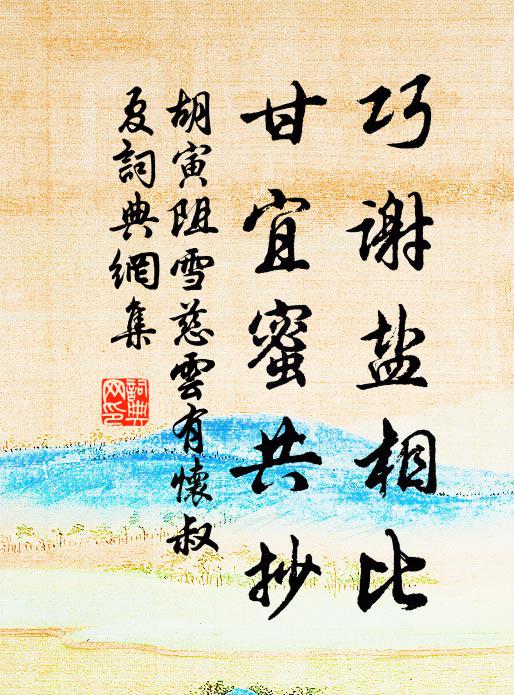 巧謝盐相比
甘宜蜜共抄
胡寅阻雪慈雲有懷叔
夏詞典網集
詞典網印